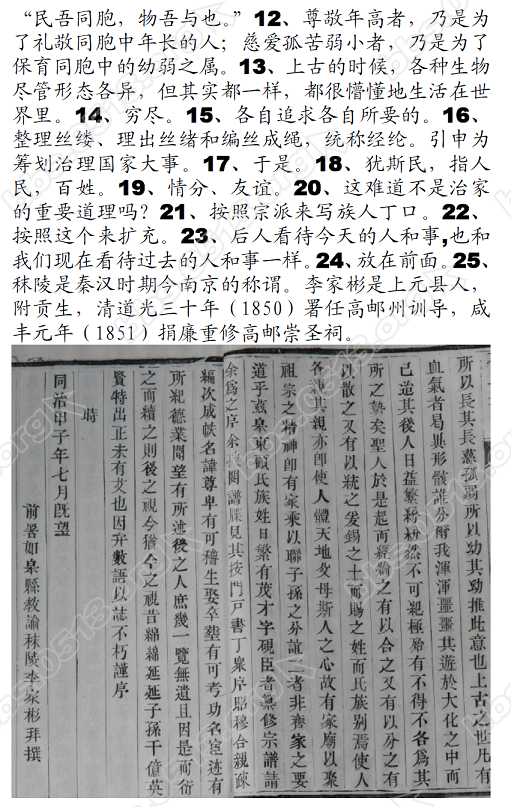 “民吾同胞，物吾与也。”12、尊敬年高者，乃是为
了礼敬同胞中年长的人；慈爱孤苦弱小者，乃是为了
保育同胞中的幼弱之属。13、上古的时候，各种生物
尽管形态各异，但其实都一样，都很懵懂地生活在世
界里。14、穷尽。15、各自追求各自所要的。16、
整理丝缕、理出丝绪和编丝成绳，统称经纶。引申为
筹划治理国家大事。17、于是。18、犹斯民，指人
民，百姓。19、情分、友谊。20、这难道不是治家
的重要道理吗？21、按照宗派来写族人丁口。22、
按照这个来扩充。23、后人看待今天的人和事,也和
我们现在看待过去的人和事一样。24、放在前面。25、
秣陵是秦汉时期今南京的称谓。李家彬是上元县人，
附贡生，清道光三十年（1850）署任高邮州训导，咸
丰元年（1851）捐廉重修高邮崇圣祠。
所以長其長慈孤弱所以幼其幼推此意也上古之世凡有
血氣者曷異形骸誰分爾我渾渾噩噩其遊於大化之中而
已迨其後人日益繁紛紛然不可紀極殆有不得不各爲其
所之勢矣聖人於是起而經綸之有以合之又有以分之有
以散之又有以統之爰錫之土而賜之姓而氏族别焉使人
各親其親亦卽使人體天地父母斯人之心故有家廟以聚
祖宗之精神卽有家乘以聯子孫之分誼者非齊家之要
道乎嘉泉東碩氏族姓日繁有茂才字硯臣者纂修宗譜請
余爲之序余披閱譜牒見其按門戶書丁衆序昭穆合親疎
編次成帙名諱尊卑有可稽生娶卒塟有可考功名宦迹有
所紀德業聞望有所述後之人庶幾一覽無遺且因是而衍
之而續之則後之視今猶今之視昔綿綿延延子孫千億英
賢特出正未有艾也因弁數語以誌不朽謹序
時
同治甲子年七月旣望
前署如臯縣教諭秣陵李家彬拜撰
bbs.0513.org